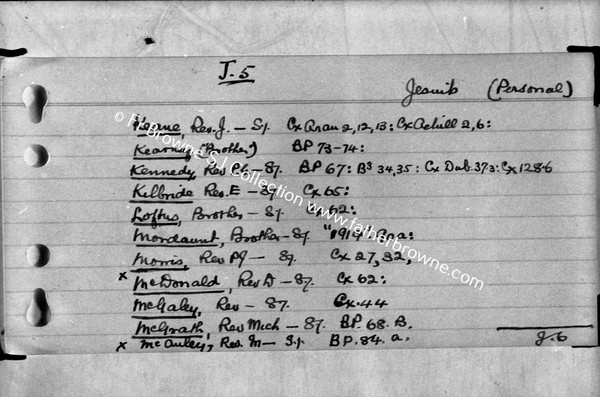 J.5
Jesuits (Personal)
Keane, Rev. J. — S.J. Cx Aran 2,12,13: Cx Achill 2,6:
Kearney (Brother) BP 73-74:
Kennedy, Rev Ch — SJ. BP 67: B3 34,35: Cx Dub. 373: Cx 1286
Kilbride Rev. E — SJ Cx 65:
Loftus, Brother — SJ. Cx 62:
Mordaunt, Brother — SJ "1919"
Morris, Rev PJ — SJ. Cx 27,32,
x McDonald, Rev D — SJ. Cx 62:
McGaley, Rev — SJ. Cx. 44
McGrath, Rev Mich — SJ. BP. 68. B.
x McAuley, Rev. M — S.J. BP. 84. a.
J.6
© Fr Browne S.J. Collection www.fatherbrowne.com